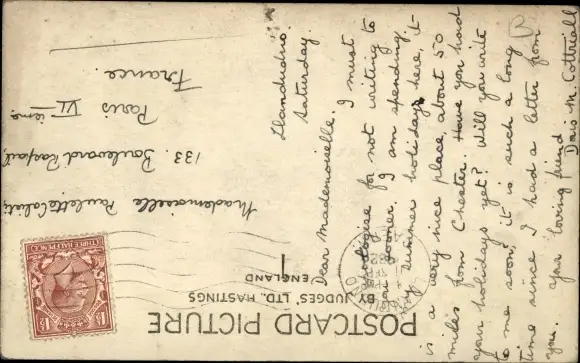 Llandudno.
Saturday.
Dear Mademoiselle. I must
apologise for not writing to
you sooner. I am spending
my summer holidays here, it
is a very nice place, about 50
miles from Chester. Have you had
your holidays yet? Will you write
to me soon, it is such a long
time since I had a letter from
you. Your loving friend
Doris M. Cottriall
Mademoiselle Paulette
133. Boulevard Raspail,
Paris VI ieme.
France.
POSTCARD PICTURE
BY JUDGES, LTD, HASTINGS
ENGLAND
THREE HALFPENCE
1½